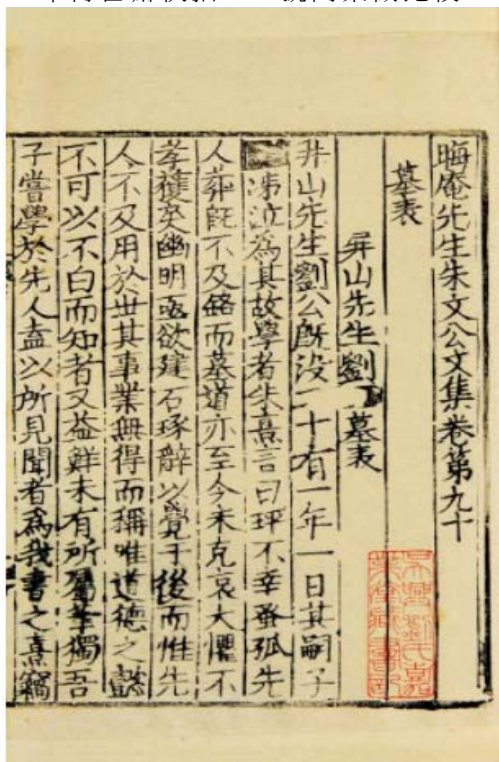 晦庵先生朱文公文集卷第九十
墓表
屏山先生劉 墓表
屏山先生劉公既没二十有一年一日其嗣子
涕泣為其故學者朱熹言曰玶不幸蚤孤先
人葬既不及銘而墓道亦至今未克表大懼不
孝獲戾幽明亟欲建石琢辭以覺于後而惟先
人不及用於世其事業無得而稱唯道德之懿
不可以不白而知者又益鮮未有所屬筆獨吾
子嘗學於先人盍以所見聞者為我書之熹竊
吳興劉氏嘉
業堂藏書印